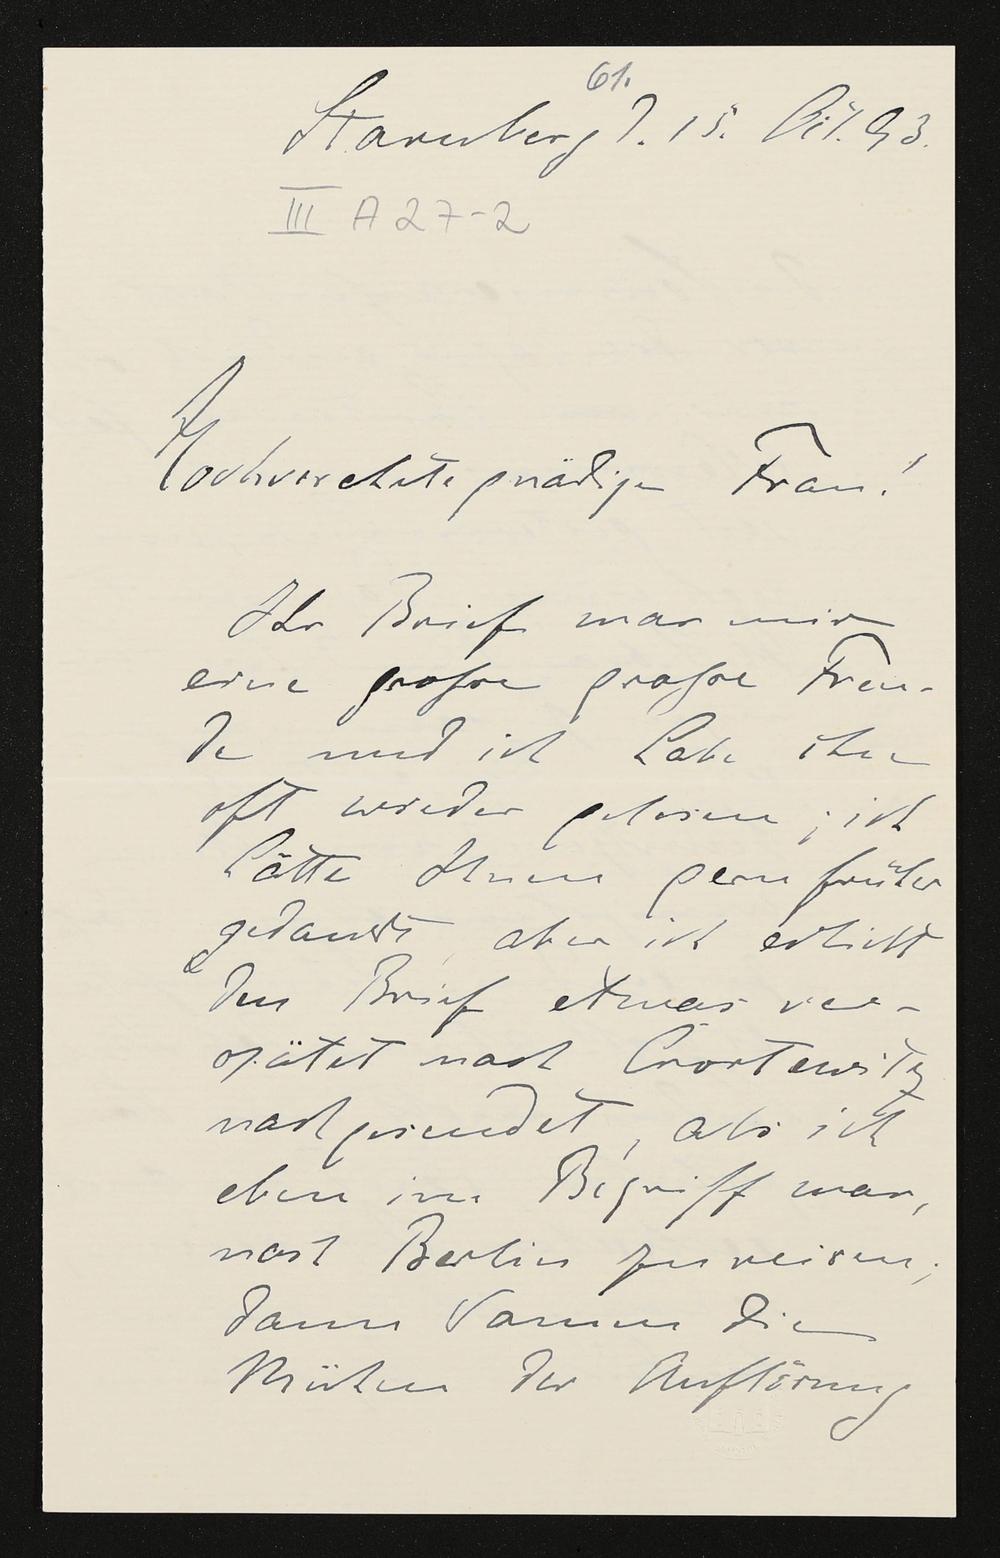 61.
Starnberg d. 15. Okt. 93.
III A 27-2
Hochverehrte gnädige Frau!
Ihr Brief war mir
eine grosse grosse Freu-
de und ich habe ihn
oft wieder gelesen; ich
hätte Ihnen gern früher
gedankt, aber ich erhielt
den Brief etwas ver-
spätet nach Crostewitz
nachgesendet, als ich
eben im Begriff war,
nach Berlin zu reisen;
dann kamen die
Mühen der Auflösung